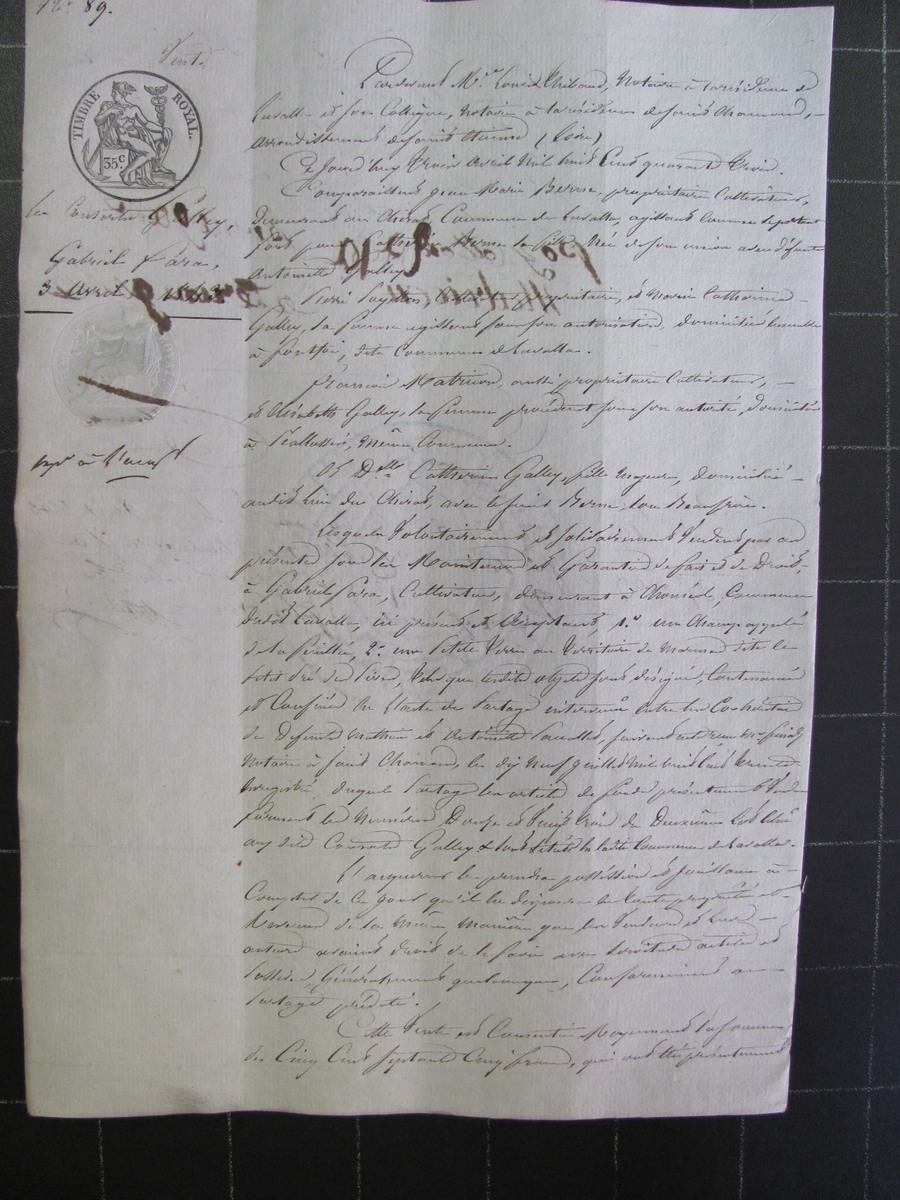 N° 89.
Vente
TIMBRE ROYAL.
35c
les Consorts Galley,
Gabriel Fara,
3 Avril
Pardevant Me Louis Thibaud, Notaire à la résidence de
Lavalla et son Collègue, Notaire à la résidence de Saint Chamond,
arrondissement de Saint Etienne (Loire)
Ce jourd'huy Trois Avril Mil huit Cent quarante Trois.
Comparaissent Jean Marie Berne, propriétaire Cultivateur,
demeurant au Chirat Commune de Lavalla, agissant Comme se portant
fort pour Berne sa fille Née de son union avec défunte
Antoinette Galley
propriétaire, et Marie Catherine
Galley, sa femme agissant sous son autorisation, domiciliés ensemble
à dite Commune de Lavalla.
François Matricon, aussi propriétaire Cultivateur,
et Elisabeth Galley, sa femme procédant sous son autorité, domiciliés
à même Commune.
Et Dlle Catherine Galley, fille majeure, domiciliée
audit lieu du Chirat, avec le sieur Berne, son Beaufrère.
Lesquels Volontairement et solidairement Vendent par ces
présentes sous les Maintenue et Garantie de fait et de Droit,
à Gabriel Fara, Cultivateur, demeurant à Commune
dudit Lavalla, ici présent et Acceptant, 1° un Champ appelé
de la 2° une Petite Terre au Territoire de dite le
petit Pré du Tels que lesdits objets sont désignés, Contenancés
et Confinés en l'acte de Partage intervenu entre les Co-héritiers
de Défunts Mathieu et Antoinette suivant acte reçu Me
Notaire à Saint Chamond, le dix Neuf Mil huit Cent Trente
Enregistré, duquel Partage les articles de fonds présentement Vendus
forment les Numéros Douze et Vingt Trois du Deuxième Lot échu
aux dits Consorts Galley & sont situés en ladite Commune de Lavalla.
L'acquéreur en prendra possession et jouissance à
Compter de Ce jour qu'il en disposera en toute propriété et
Revenus de la Même Manière que les Vendeurs et Leurs
auteurs avaient droit de le faire avec servitudes actives et
Passives, Généralement quelconques, Conformément au
Partage précité.
Cette Vente est Consentie Moyennant la somme
de Cinq Cent Septante Cinq francs, qui ont été présentement